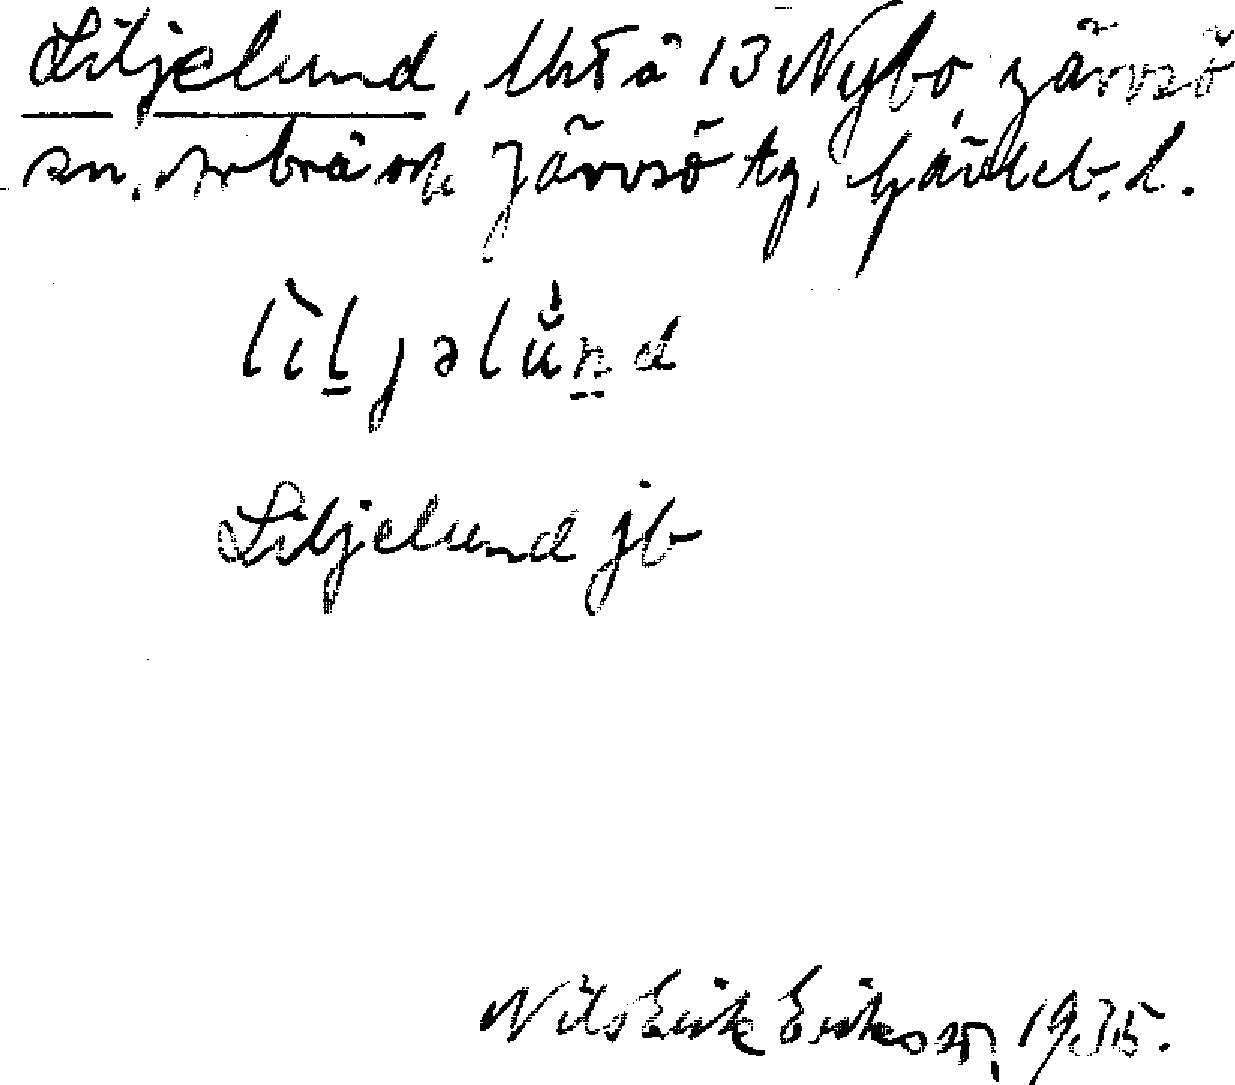 Liljelund, lht å 13 Nybo, Järvsö
sn. Arbrå och Järvsö tg, Gävleb. l.
lìljəlŭnd
Liljelund jb
Nils Eric Erikson, 1935.